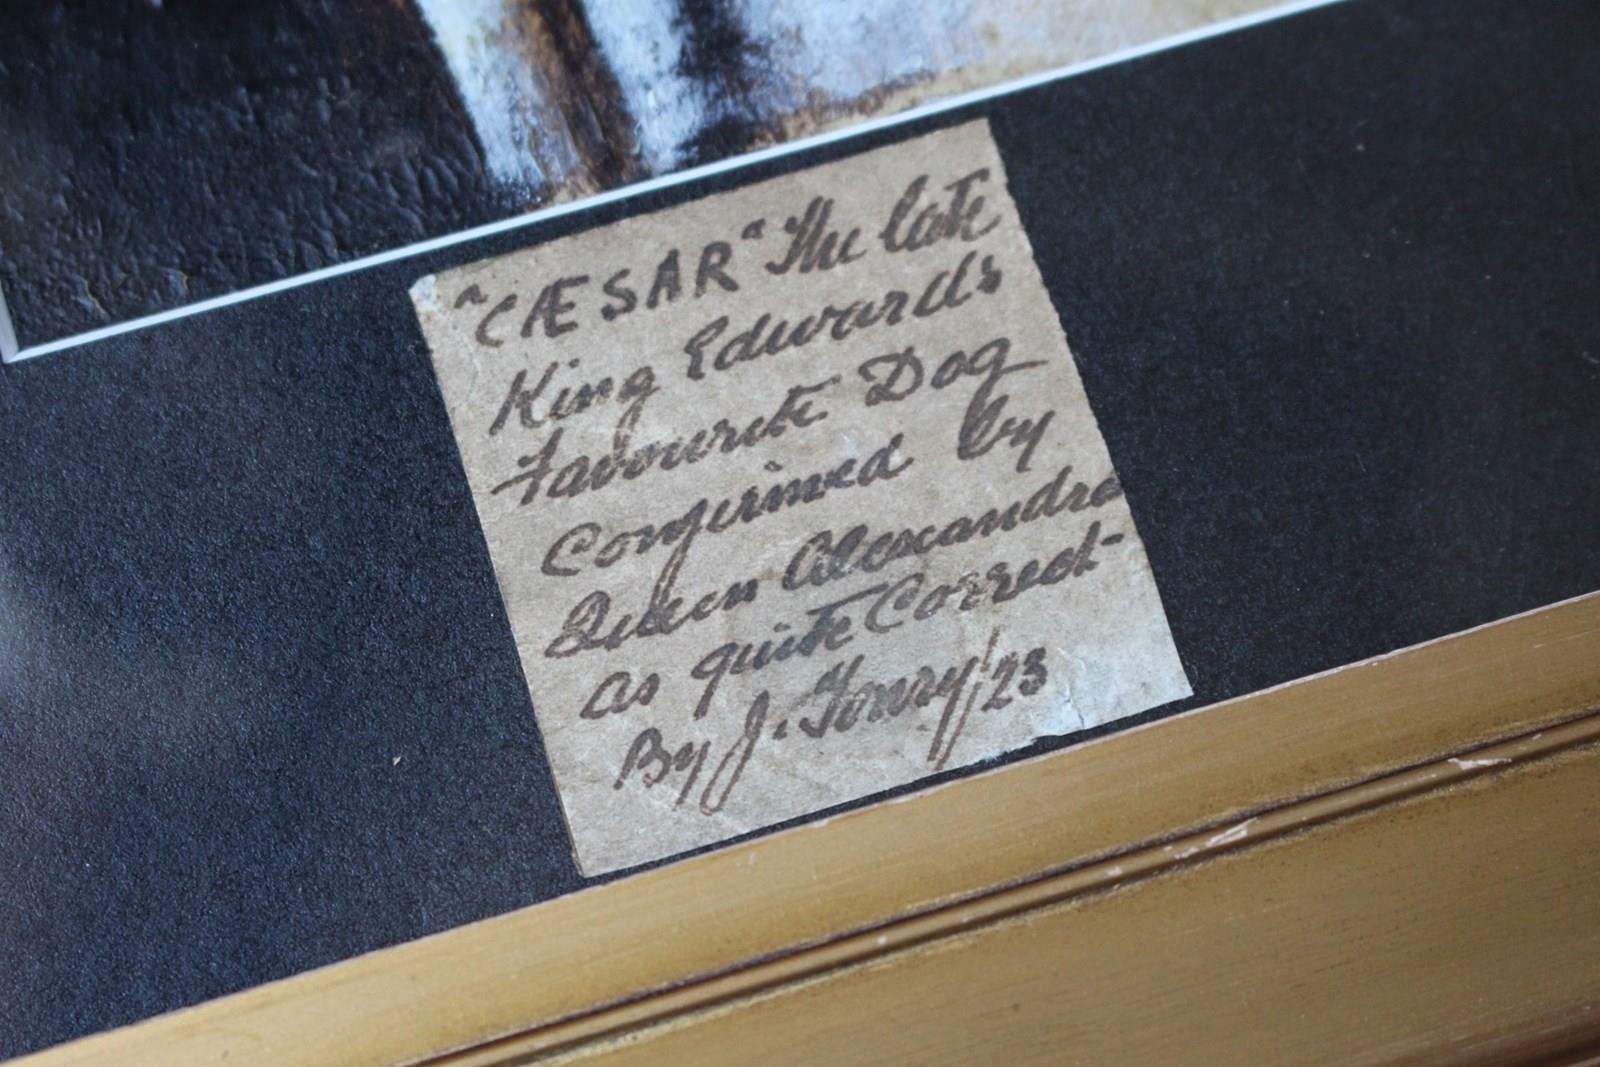 "CÆSAR" The late
King Edwards
Favourite Dog
Confirmed by
Queen Alexandra
as quite Correct-
By J. '23